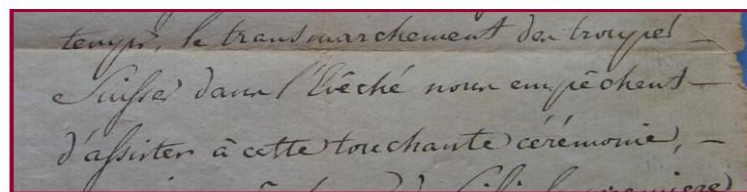 temps, le transmarchement des troupes
Suisses dans l'Evêché nous empêchent
d'assister à cette touchante cérémonie,